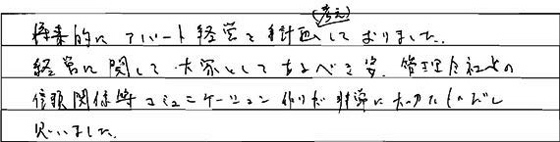 (考え)
将来的に アパート経営を計画しておりました。
経営に関して 大家としてあるべき姿、管理会社との
信頼関係等コミュニケーション作りが非常に大切だと
思いました。